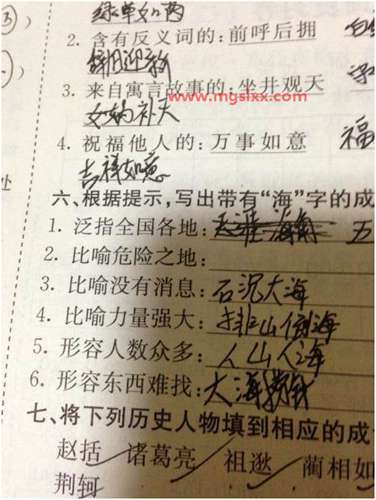 绿草如茵
2. 含有反义词的:前呼后拥
辞旧迎新
3. 来自寓言故事的:坐井观天
www.mgslxx.com
女娲补天
4. 祝福他人的:万事如意 福
吉祥如意
六、根据提示,写出带有“海”字的成
1. 泛指全国各地:天涯海角 五
2. 比喻危险之地:
3. 比喻没有消息:石沉大海
4. 比喻力量强大:排山倒海
5. 形容人数众多:人山人海
6. 形容东西难找:大海捞针
七、将下列历史人物填到相应的成
赵括 诸葛亮 祖逖 蔺相如
荆轲